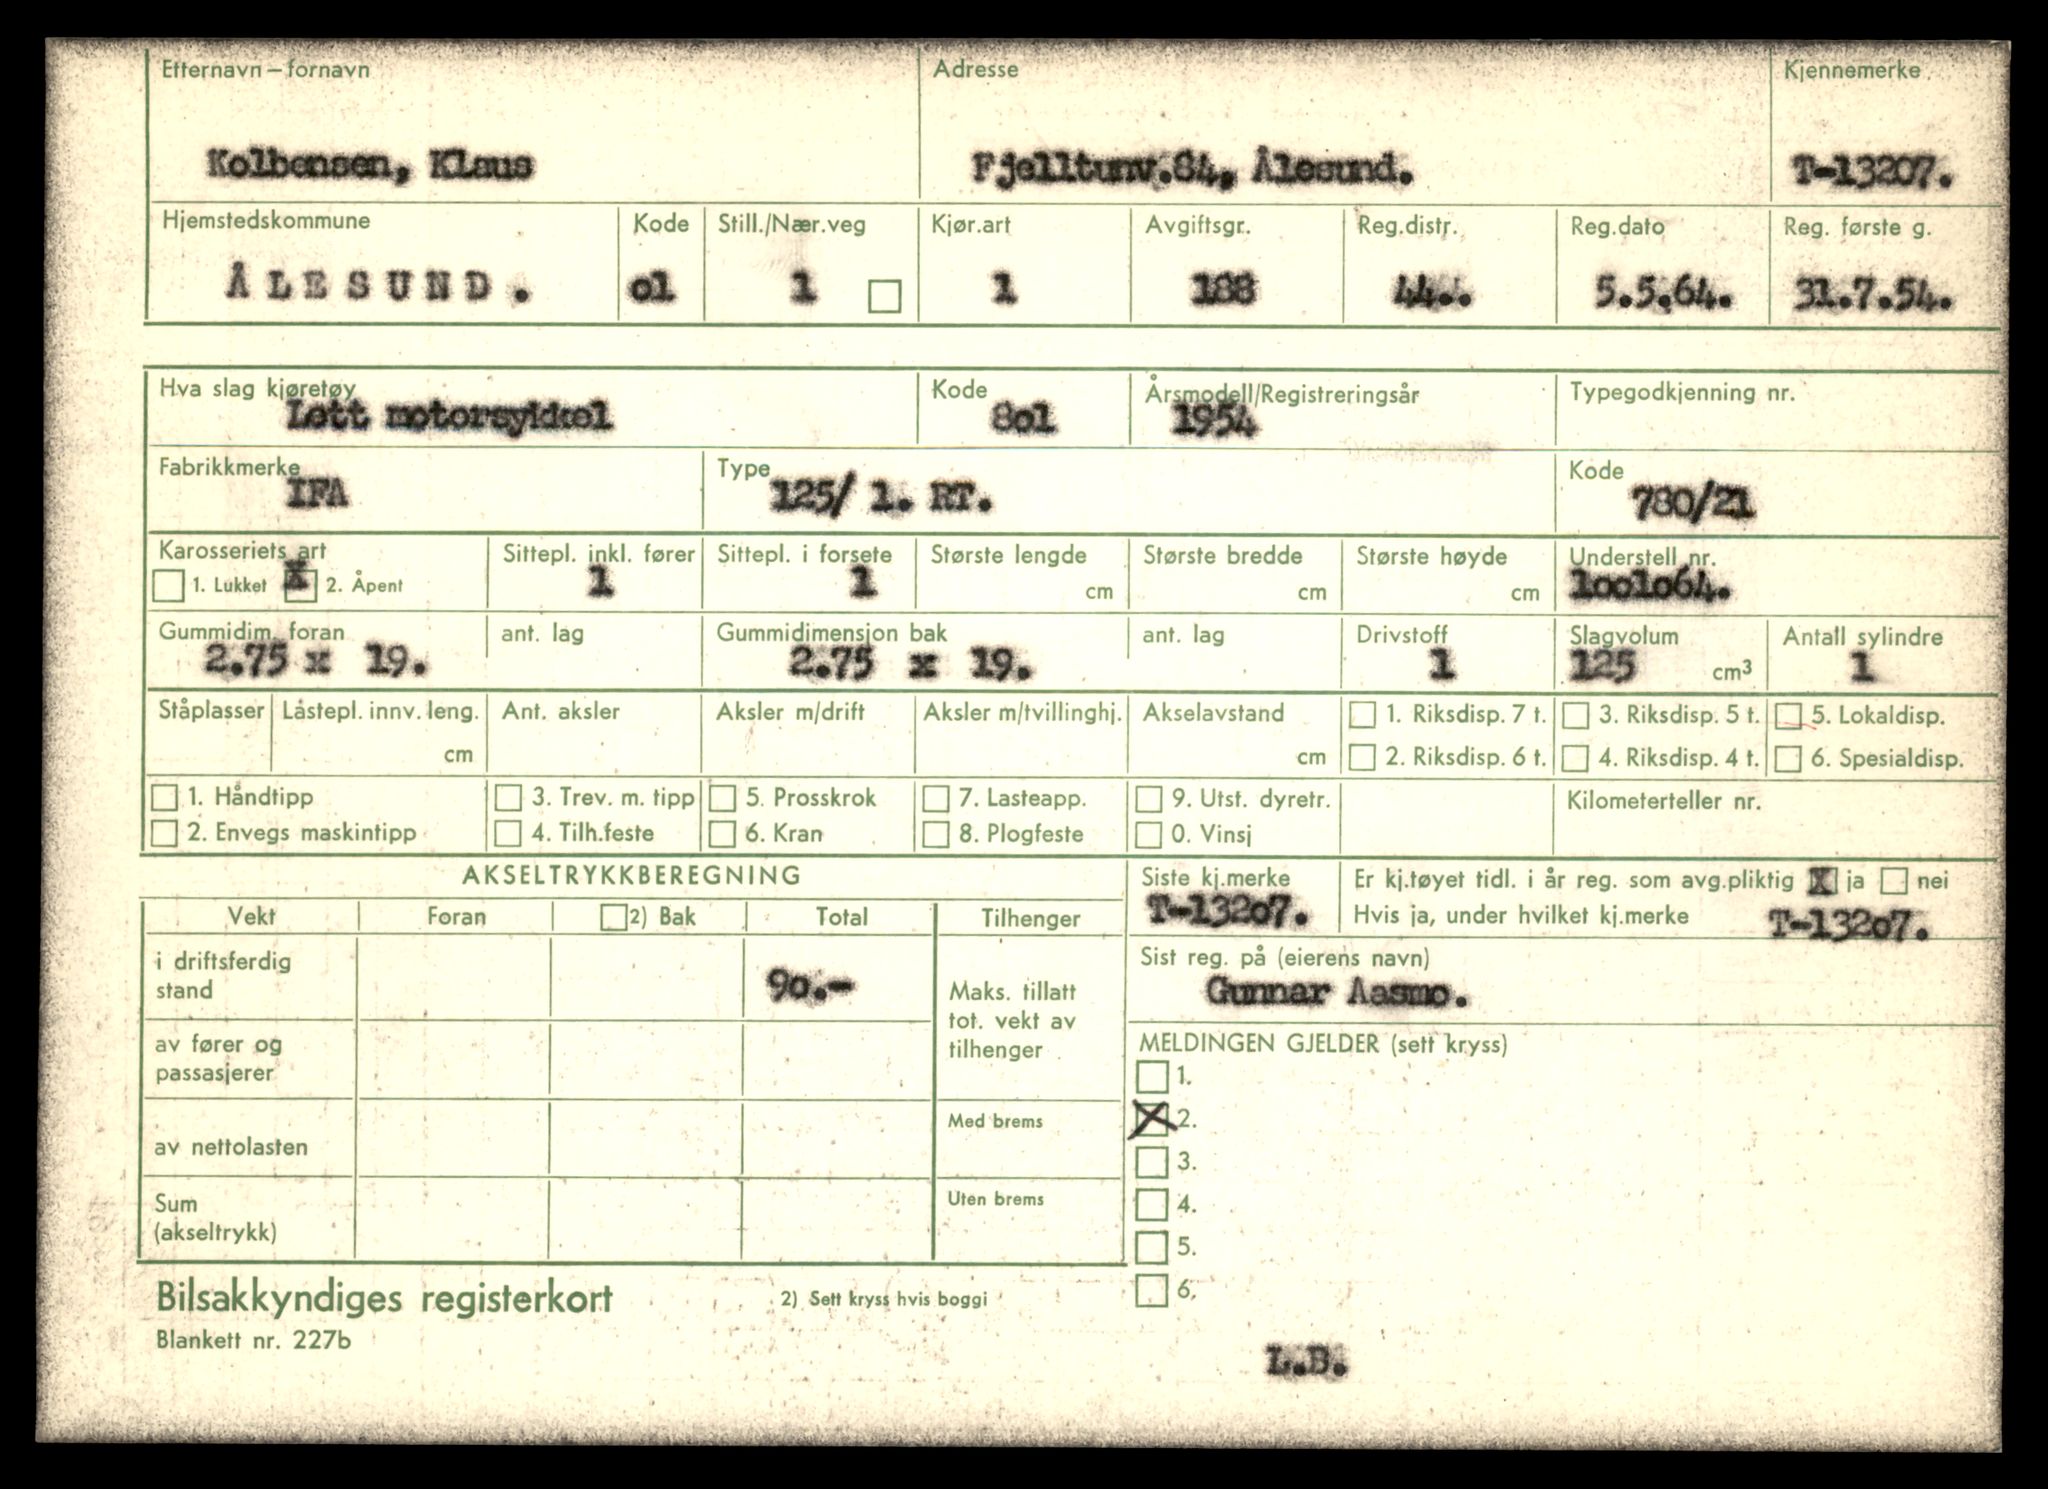 Etternavn – fornavn Adresse Kjennemerke
Kolbensen, Klaus Fjelltunv.84, Ålesund. T-13207.
Hjemstedskommune Kode Still./Nær.veg Kjør.art Avgiftsgr. Reg.distr. Reg.dato Reg. første g.
ÅLESUND. o1 1 1 188 44.. 5.5.64. 31.7.54.
Hva slag kjøretøy Kode Årsmodell/Registreringsår Typegodkjenning nr.
Lett motorsykkel 8o1 1954
Fabrikkmerke Type Kode
IFA 125/ 1. RT. 780/21
Karosseriets art Sittepl. inkl. fører Sittepl. i forsete Største lengde Største bredde Største høyde Understell nr.
1. Lukket X 2. Åpent 1 1 cm cm cm 1oo1o64.
Gummidim. foran ant. lag Gummidimensjon bak ant. lag Drivstoff Slagvolum Antall sylindre
2.75 x 19. 2.75 x 19. 1 125 cm3 1
Ståplasser Låstepl. innv. leng. Ant. aksler Aksler m/drift Aksler m/tvillinghj. Akselavstand 1. Riksdisp. 7 t. 3. Riksdisp. 5 t. 5. Lokaldisp.
cm cm 2. Riksdisp. 6 t. 4. Riksdisp. 4 t. 6. Spesialdisp.
1. Håndtipp 3. Trev. m. tipp 5. Prosskrok 7. Lasteapp. 9. Utst. dyretr. Kilometerteller nr.
2. Envegs maskintipp 4. Tilh.feste 6. Kran 8. Plogfeste 0. Vinsj
AKSELTRYKKBEREGNING Siste kj.merke Er kj.tøyet tidl. i år reg. som avg.pliktig X ja nei
T-132o7. Hvis ja, under hvilket kj.merke T-132o7.
Vekt Foran 2) Bak Total Tilhenger
Sist reg. på (eierens navn)
Gunnar Aasmo.
i driftsferdig
stand 9o.-
Maks. tillatt
tot. vekt av
tilhenger
av fører og
passasjerer
MELDINGEN GJELDER (sett kryss)
1.
X 2.
3.
4.
5.
6.
av nettolasten Med brems
Sum
(akseltrykk) Uten brems
Bilsakkyndiges registerkort 2) Sett kryss hvis boggi
Blankett nr. 227b
L.B.